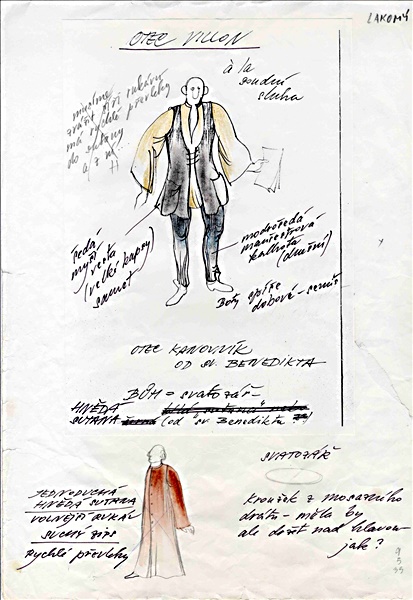 LAKOMÝ
OTEC VILLON
à la
soudní
sluha
minulme
zúžit šíři rukávu
má rychlé převleky
do sutany
a z ní
šedá
myší
vesta
(velké kapsy)
samet
modrošedá
manšestrová
kalhota
(dnešní)
Boty spíše
dobové - semiš
OTEC KANOVNÍK
OD SV. BENEDIKTA
BŮH = svatozář -
HNĚDÁ
SUTANA (od sv. Benedikta)
JEDNODUCHÁ
HNĚDÁ SUTANA
VOLNĚJŠÍ RUKÁV
SUCHÝ ZIPS
Rychlé převleky
SVATOZÁŘ
kroužek z mosazného
drátu - měla by
ale držet nad hlavou
jak?